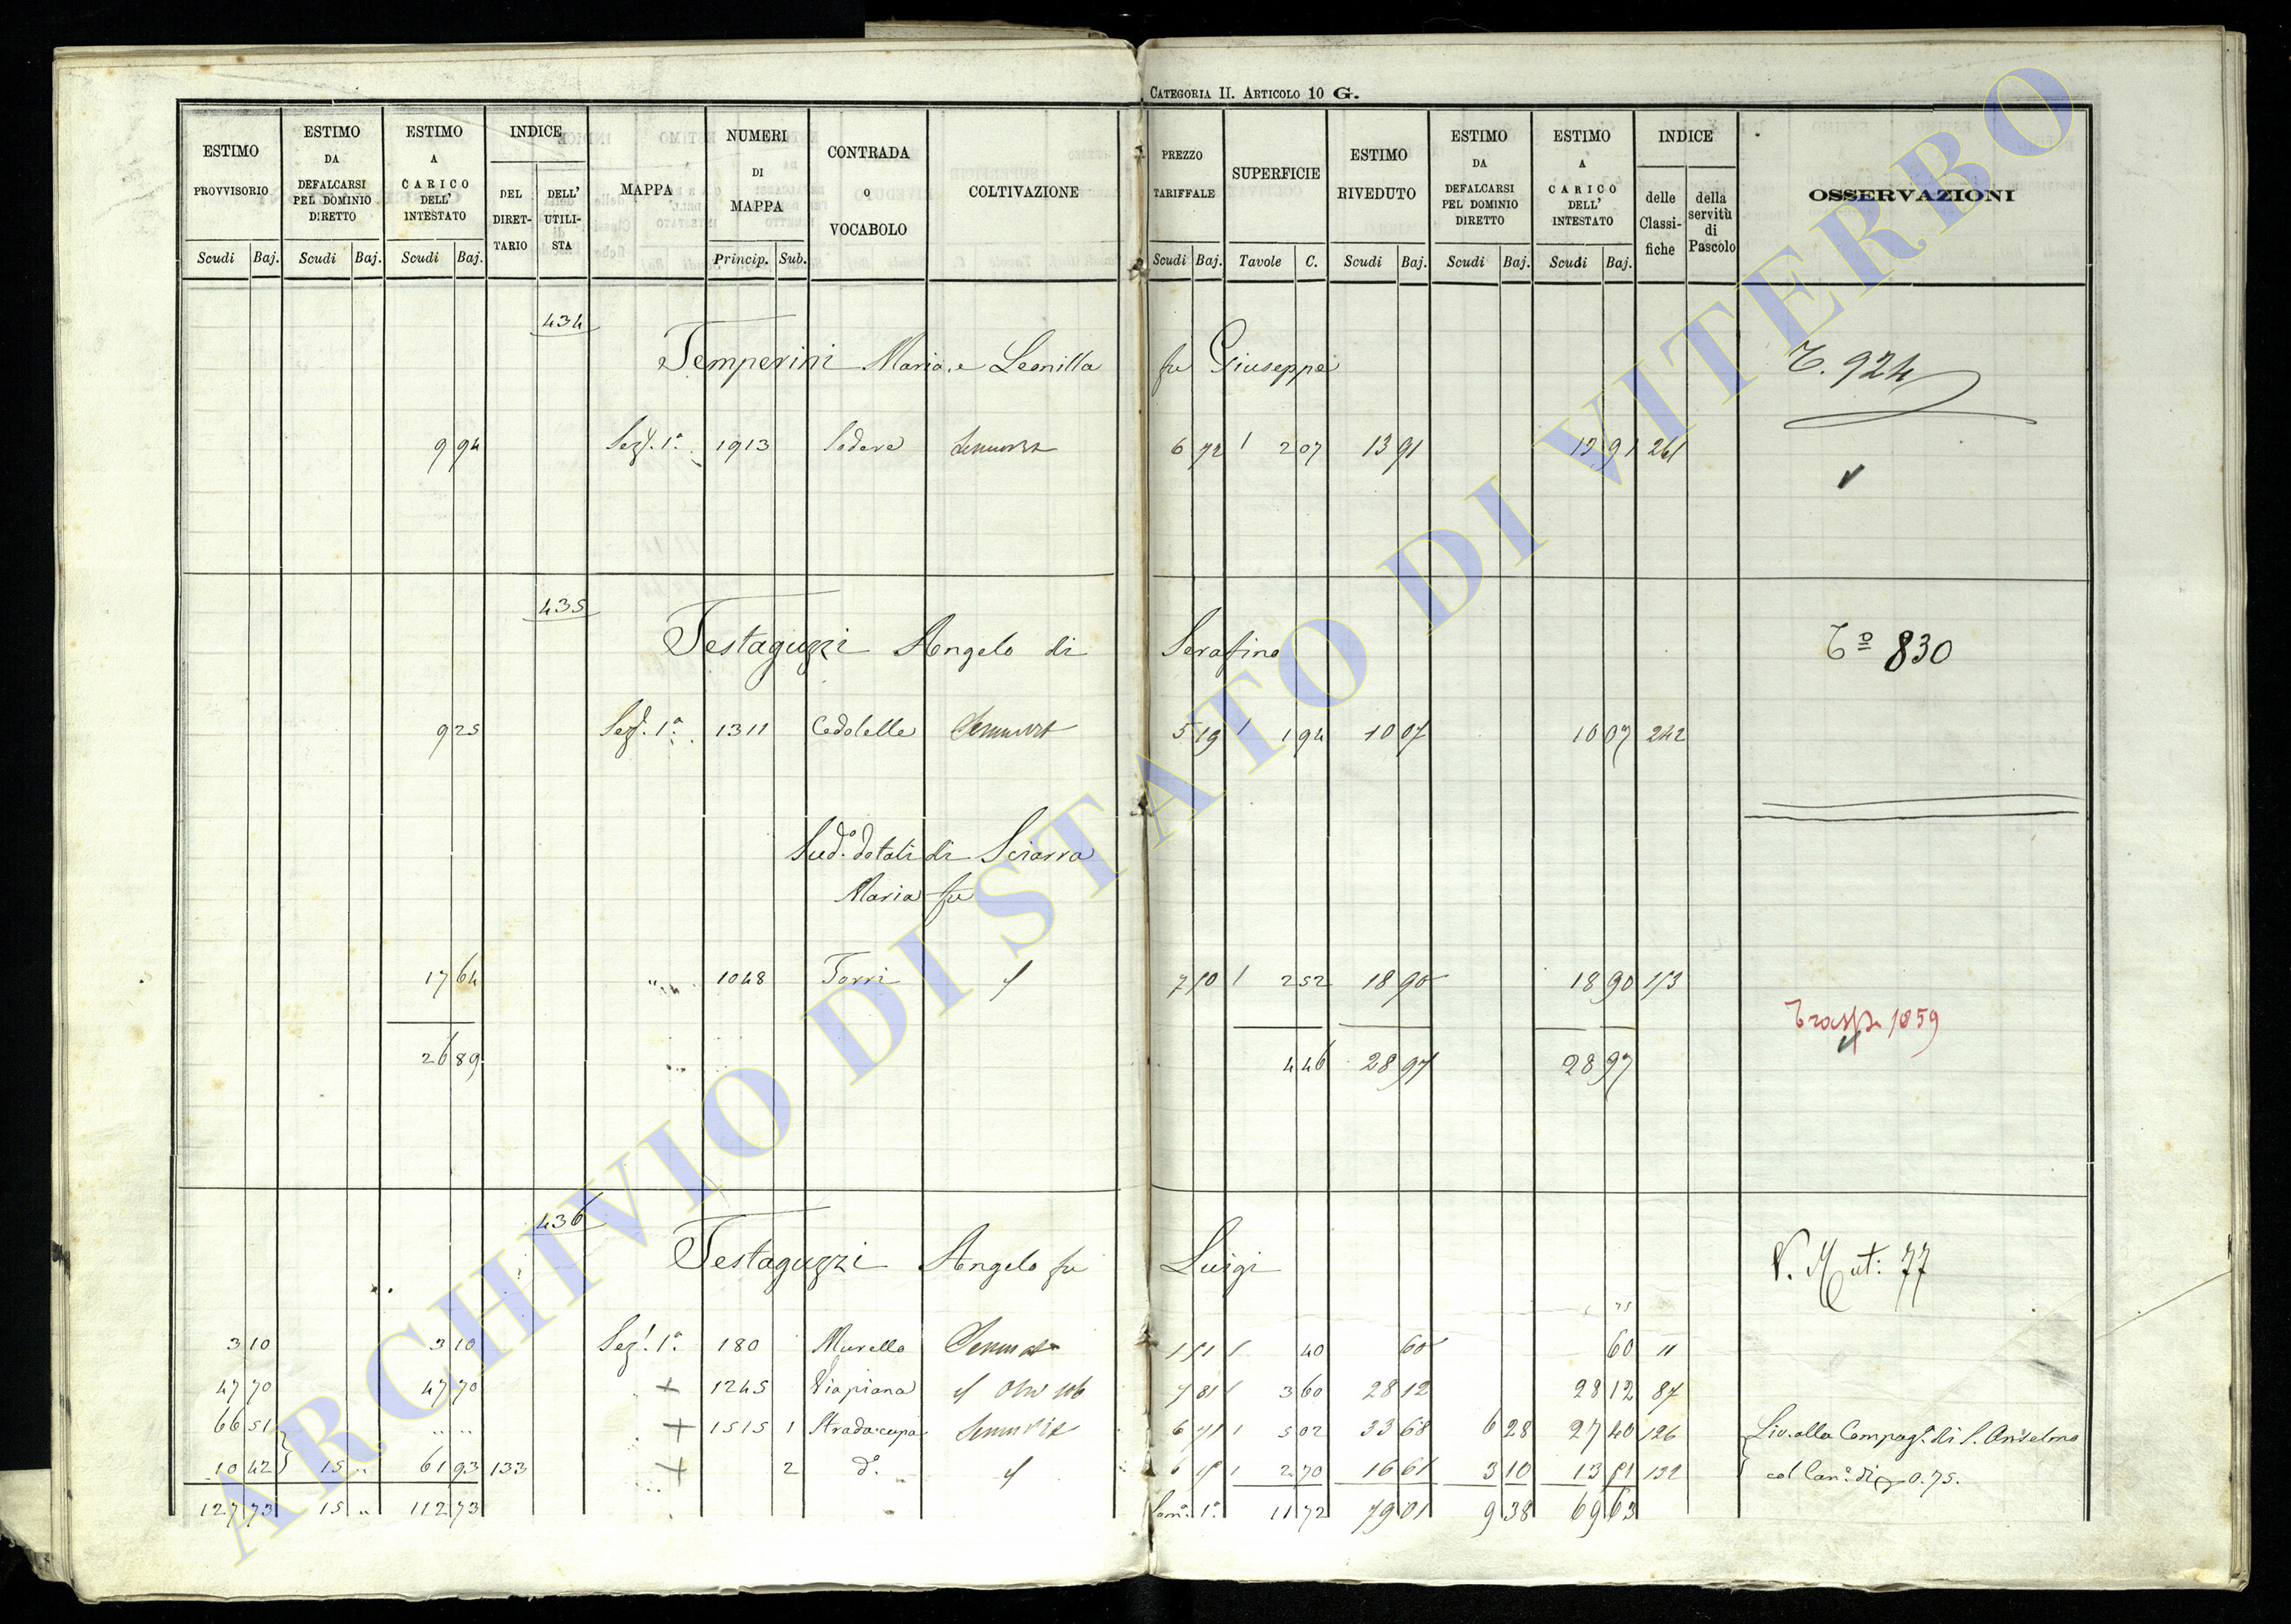 CATEGORIA II. ARTICOLO 10 G.
ESTIMO PROVVISORIO Scudi Baj.
ESTIMO DA DEFALCARSI PEL DOMINIO DIRETTO Scudi Baj.
ESTIMO A CARICO DELL' INTESTATO Scudi Baj.
INDICE DEL DIRET-TARIO DELL' UTILI-STA
MAPPA
NUMERI DI MAPPA Princip. Sub.
CONTRADA o VOCABOLO
COLTIVAZIONE
PREZZO TARIFFALE Scudi Baj.
SUPERFICIE Tavole C.
ESTIMO RIVEDUTO Scudi Baj.
ESTIMO DA DEFALCARSI PEL DOMINIO DIRETTO Scudi Baj.
ESTIMO A CARICO DELL' INTESTATO Scudi Baj.
INDICE delle Classi-fiche della servitù di Pascolo
OSSERVAZIONI
434
Temperini Maria e Leonilla fu Giuseppe T. 924
9 94 Sez. 1a 1913 6 72 1 2 07 13 91 13 91 261
435
Testaguzzi Angelo di Serafino To 830
9 25 Sez. 1a 1311 Cedolelle 5 19 1 1 94 10 07 10 07 242
Sud.o dotali di Sciarra
Maria fu
17 64 " 1048 Torri 7 50 1 2 52 18 90 18 90 153
Trasp. 1059
26 89 4 46 28 97 28 97
436
Testaguzzi Angelo fu Luigi V. Mut: 77
3 10 3 10 Sez. 1a 180 Murella 1 51 1 40 60 60 11
47 70 47 70 + 1245 Viapiana 7 81 1 3 60 28 12 28 12 87
66 51 " " + 1515 1 Stradacupa 6 71 1 5 02 33 68 6 28 27 40 126 Liv. alla Compag. di S. Anselmo
10 42 15 " 61 93 133 + 2 do 2 70 16 61 3 10 13 51 132 col Can.e di 0.75.
127 73 15 " 112 73 11 72 79 01 9 38 69 63
ARCHIVIO DI STATO DI VITERBO